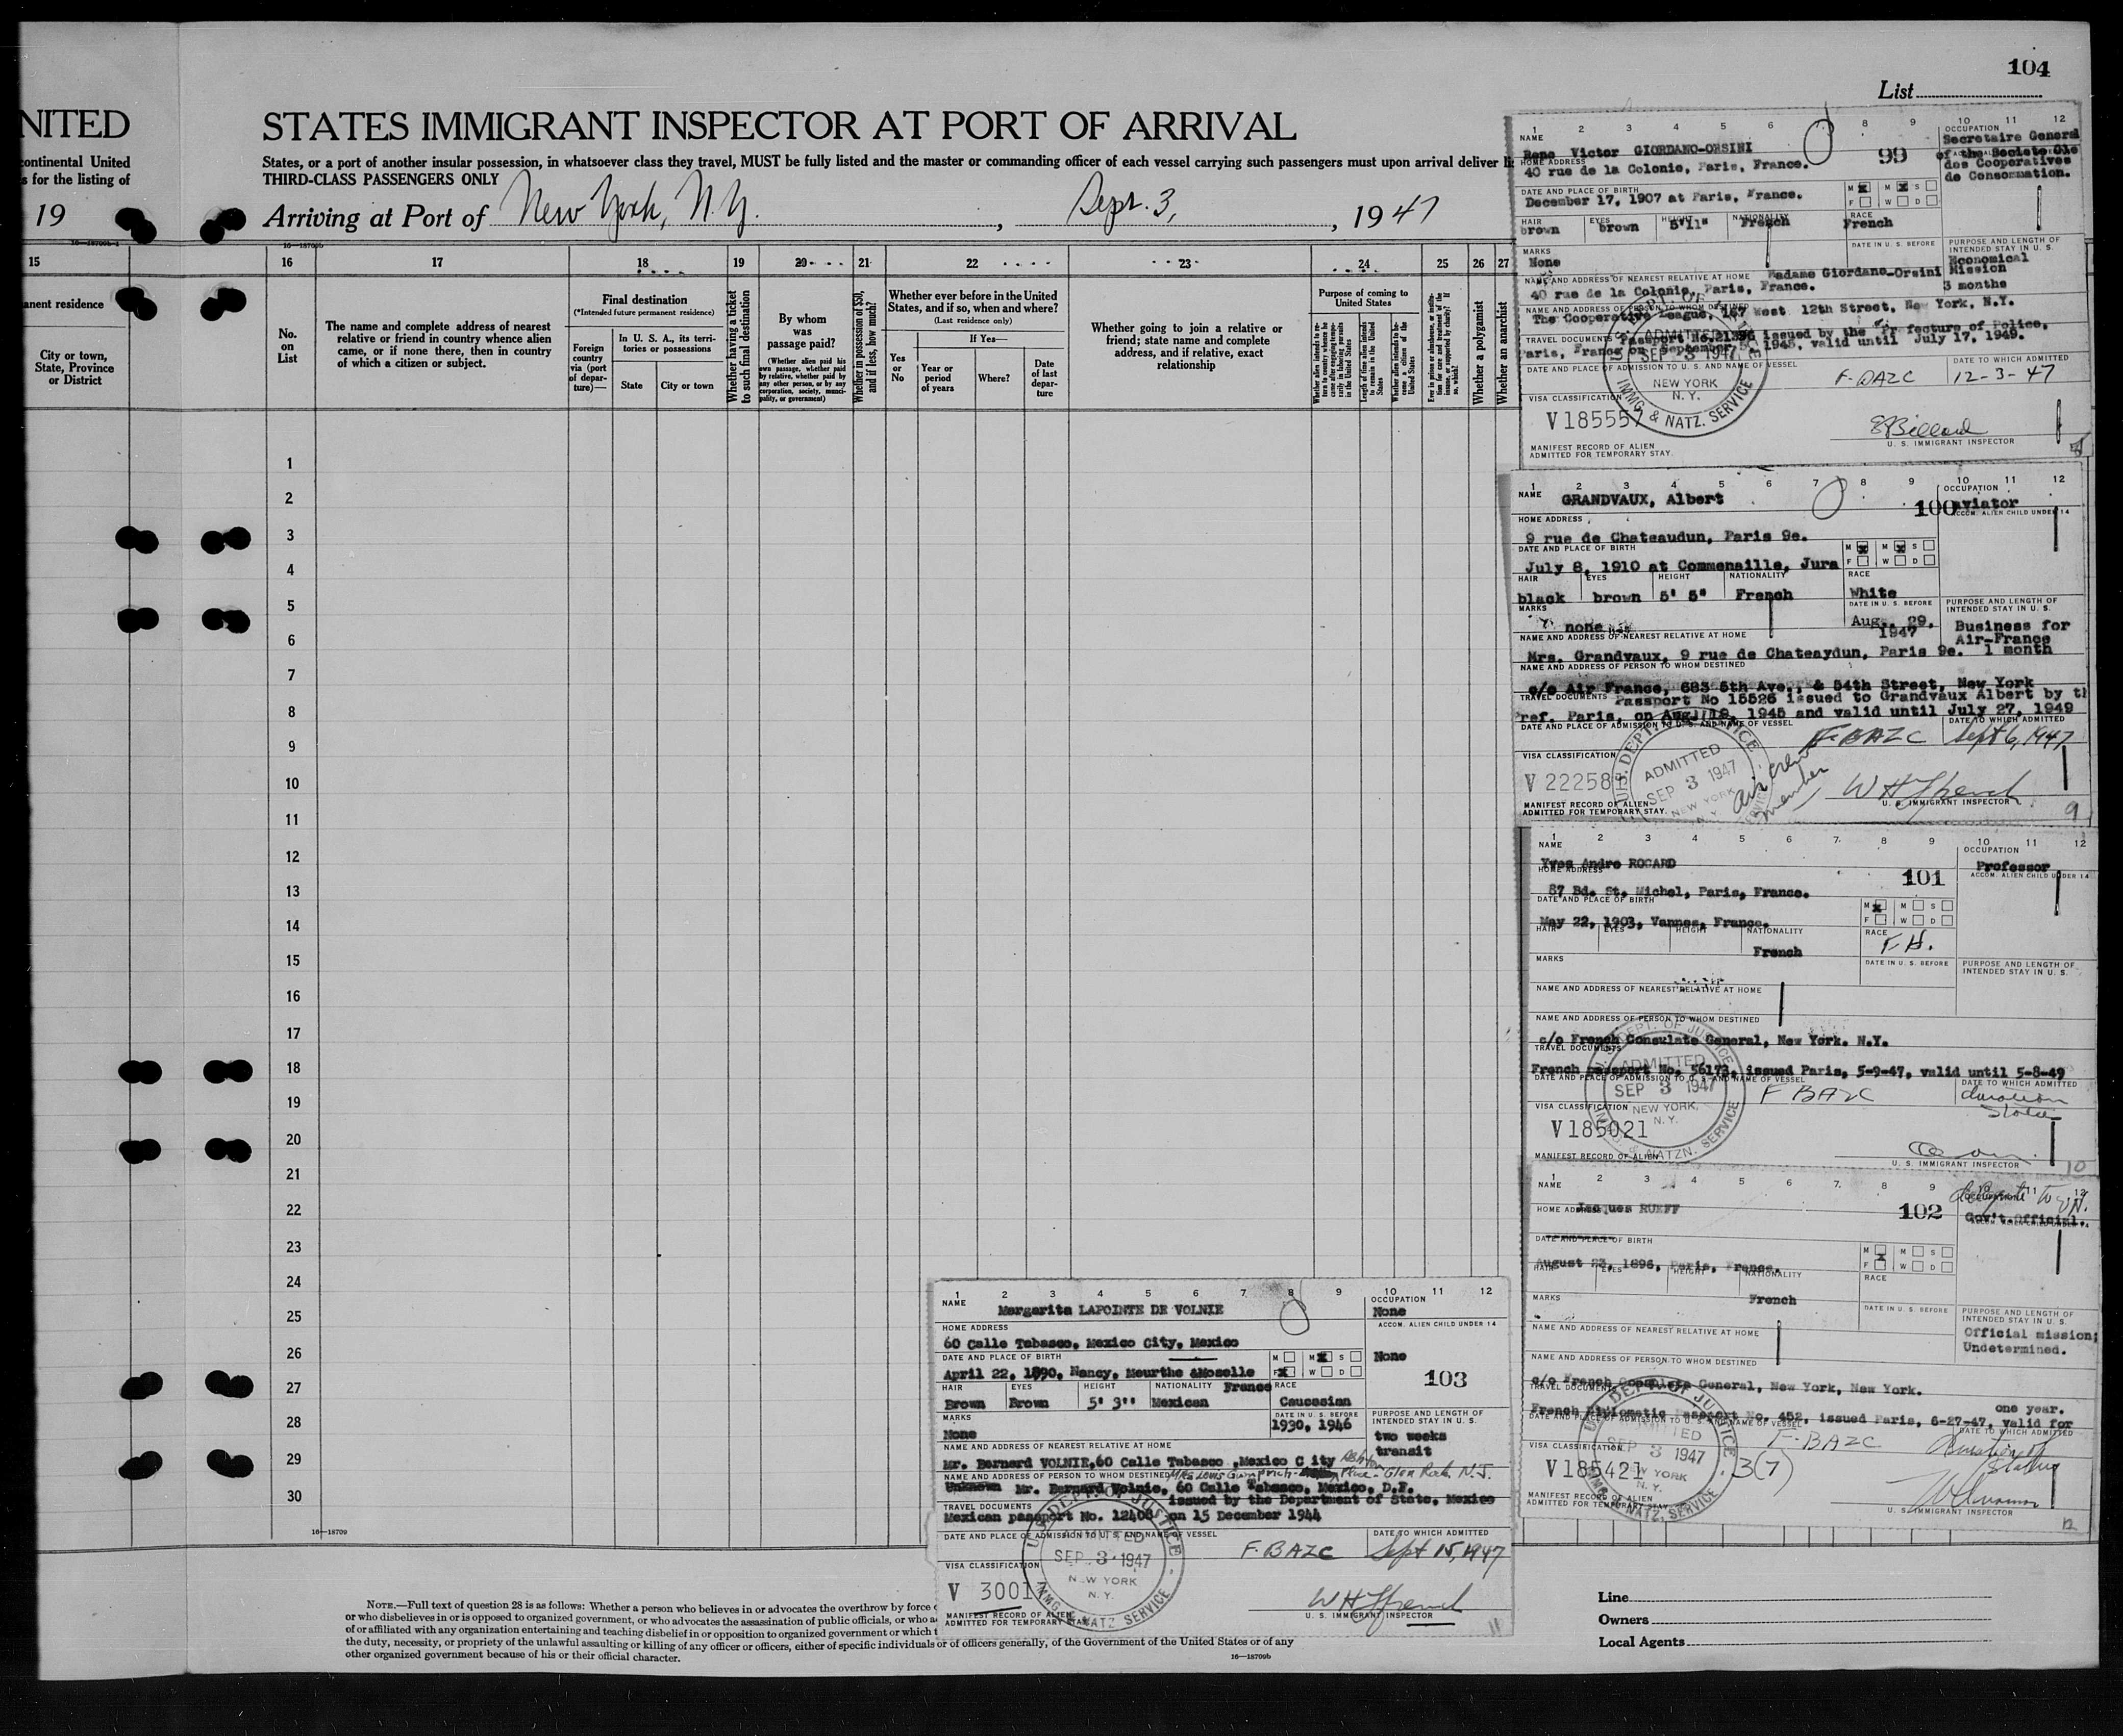 104
List
NITED
STATES IMMIGRANT INSPECTOR AT PORT OF ARRIVAL
continental United
s for the listing of
States, or a port of another insular possession, in whatsoever class they travel, MUST be fully listed and the master or commanding officer of each vessel carrying such passengers must upon arrival deliver
THIRD-CLASS PASSENGERS ONLY
19
Arriving at Port of New York, N.Y. , Sept. 3, , 1947
16—18709b
15 16 17 18 19 20 21 22 23 24 25 26 27
anent residence
City or town, State, Province or District
No. on List
The name and complete address of nearest relative or friend in country whence alien came, or if none there, then in country of which a citizen or subject.
Final destination
(*Intended future permanent residence)
Foreign country via (port of departure)—
In U. S. A., its territories or possessions
State
City or town
Whether having a ticket to such final destination
By whom was passage paid?
(Whether alien paid his own passage, whether paid by relative, whether paid by any other person, or by any corporation, society, municipality, or government)
Whether in possession of $50, and if less, how much?
Whether ever before in the United States, and if so, when and where?
(Last residence only)
If Yes—
Yes or No
Year or period of years
Where?
Date of last departure
Whether going to join a relative or friend; state name and complete address, and if relative, exact relationship
Purpose of coming to United States
Length of time alien intends to remain in the United States
Whether alien intends to become a citizen of the United States
Whether a polygamist
Whether an anarchist
1
2
3
4
5
6
7
8
9
10
11
12
13
14
15
16
17
18
19
20
21
22
23
24
25
26
27
28
29
30
16—18709
NOTE.—Full text of question 28 is as follows: Whether a person who believes in or advocates the overthrow by force
or who disbelieves in or is opposed to organized government, or who advocates the assassination of public officials, or who
of or affiliated with any organization entertaining and teaching disbelief in or opposition to organized government or which
the duty, necessity, or propriety of the unlawful assaulting or killing of any officer or officers, either of specific individuals or of officers generally, of the Government of the United States or of any
other organized government because of his or their official character.
16—18709b
Line
Owners
Local Agents
1 2 3 4 5 6 8 9 10 11 12
NAME
Rene Victor GIORDANO-ORSINI
99
OCCUPATION
Secretaire General
of the Societe Gle
des Cooperatives
de Consommation.
HOME ADDRESS
40 rue de la Colonie, Paris, France.
DATE AND PLACE OF BIRTH
December 17, 1907 at Paris, France.
M M S
F W D
HAIR EYES HEIGHT NATIONALITY RACE
brown brown 5'11" French French
MARKS
None
DATE IN U. S. BEFORE
PURPOSE AND LENGTH OF INTENDED STAY IN U. S.
Economical
Mission
3 months
NAME AND ADDRESS OF NEAREST RELATIVE AT HOME
Madame Giordano-Orsini
40 rue de la Colonie, Paris, France.
NAME AND ADDRESS OF PERSON TO WHOM DESTINED
The Cooperative League, 167 West 12th Street, New York, N.Y.
TRAVEL DOCUMENTS
Passport No.21396 issued by the Prefecture of Police,
Paris, France on September 1945, valid until July 17, 1949.
DATE AND PLACE OF ADMISSION TO U. S. AND NAME OF VESSEL
DATE TO WHICH ADMITTED
12-3-47
ADMITTED
SEP 3 1947
NEW YORK
N. Y.
IMMG. & NATZ. SERVICE
VISA CLASSIFICATION
V185557
U. S. IMMIGRANT INSPECTOR
MANIFEST RECORD OF ALIEN
ADMITTED FOR TEMPORARY STAY.
1 2 3 4 5 6 7 8 9 10 11 12
NAME
GRANDVAUX, Albert
100
OCCUPATION
Aviator
ACCOM. ALIEN CHILD UNDER 14
HOME ADDRESS
9 rue de Chateaudun, Paris 9e.
DATE AND PLACE OF BIRTH
July 8, 1910 at Commenaille, Jura
M M S
F W D
HAIR EYES HEIGHT NATIONALITY RACE
black brown 5' 5" French White
MARKS
none
DATE IN U. S. BEFORE
Aug. 29,
1947
PURPOSE AND LENGTH OF INTENDED STAY IN U. S.
Business for
Air-France
1 month
NAME AND ADDRESS OF NEAREST RELATIVE AT HOME
Mrs. Grandvaux, 9 rue de Chateaydun, Paris 9e.
NAME AND ADDRESS OF PERSON TO WHOM DESTINED
c/o Air France, 683 5th Ave., & 54th Street, New York
TRAVEL DOCUMENTS
Passport No 15526 issued to Grandvaux Albert by th
Pref. Paris, on Aug. 19, 1945 and valid until July 27, 1949
DATE AND PLACE OF ADMISSION TO U. S. AND NAME OF VESSEL
F-BAZC
DATE TO WHICH ADMITTED
Sept 6, 1947
VISA CLASSIFICATION
V 22258
U.S. DEPT. OF JUSTICE
ADMITTED
SEP 3 1947
NEW YORK
N.Y.
air crew
member
W H French
U. S. IMMIGRANT INSPECTOR
MANIFEST RECORD OF ALIEN
ADMITTED FOR TEMPORARY STAY.
9
1 2 3 4 5 6 7 8 9 10 11 12
NAME
Yves Andre ROCARD
101
OCCUPATION
Professor
ACCOM. ALIEN CHILD UNDER 14
HOME ADDRESS
87 Bd. St. Michel, Paris, France.
DATE AND PLACE OF BIRTH
May 22, 1903, Vannes, France.
M M S
F W D
HAIR EYES HEIGHT NATIONALITY RACE
French
MARKS
DATE IN U. S. BEFORE
PURPOSE AND LENGTH OF INTENDED STAY IN U. S.
NAME AND ADDRESS OF NEAREST RELATIVE AT HOME
NAME AND ADDRESS OF PERSON TO WHOM DESTINED
c/o French Consulate General, New York. N.Y.
TRAVEL DOCUMENTS
French passport No. 56173, issued Paris, 5-9-47, valid until 5-8-49
DATE AND PLACE OF ADMISSION TO U. S. AND NAME OF VESSEL
F BAZC
DATE TO WHICH ADMITTED
duration
status
DEPT. OF JUSTICE
ADMITTED
SEP 3 1947
NEW YORK,
N. Y.
NATZN. SERVICE
VISA CLASSIFICATION
V185021
MANIFEST RECORD OF ALIEN
U. S. IMMIGRANT INSPECTOR
10
1 2 3 4 5 6 7 8 9 11 12
NAME
Jacques RUEFF
102
delegate to UN.
Gov't.Official.
HOME ADDRESS
DATE AND PLACE OF BIRTH
August 23, 1896, Paris, France.
M M S
F W D
HAIR EYES HEIGHT NATIONALITY RACE
French
MARKS
DATE IN U. S. BEFORE
PURPOSE AND LENGTH OF INTENDED STAY IN U. S.
Official mission;
Undetermined.
NAME AND ADDRESS OF NEAREST RELATIVE AT HOME
NAME AND ADDRESS OF PERSON TO WHOM DESTINED
c/o French Consulate General, New York, New York.
TRAVEL DOCUMENTS
one year.
French Diplomatic Passport No. 452, issued Paris, 6-27-47, valid for
DATE AND PLACE OF ADMISSION TO U. S. AND NAME OF VESSEL
F-BAZC
DATE TO WHICH ADMITTED
Duration of
Status
SEP 3 1947
NEW YORK
N. Y.
NATZ. SERVICE
VISA CLASSIFICATION
V185421
3(7)
MANIFEST RECORD OF ALIEN
ADMITTED FOR TEMPORARY STAY
U. S. IMMIGRANT INSPECTOR
12
1 2 3 4 5 6 7 8 9 10 11 12
NAME
Margarita LAPOINTE DE VOLNIE
OCCUPATION
None
ACCOM. ALIEN CHILD UNDER 14
None
103
HOME ADDRESS
60 Calle Tabasco, Mexico City, Mexico
DATE AND PLACE OF BIRTH
April 22, 1890, Nancy, Meurthe &Moselle
France
M M S
F W D
HAIR EYES HEIGHT NATIONALITY RACE
Brown Brown 5' 3" Mexican Caucasian
MARKS
None
DATE IN U.S. BEFORE
1930, 1946
PURPOSE AND LENGTH OF INTENDED STAY IN U.S.
two weeks
transit
NAME AND ADDRESS OF NEAREST RELATIVE AT HOME
Mr. Bernard VOLNIE,60 Calle Tabasco ,Mexico C ity
NAME AND ADDRESS OF PERSON TO WHOM DESTINED
Place - Glen Rock, N.J.
Unknown Mr. Bernard Volnie, 60 Calle Tabasco, Mexico, D.F.
TRAVEL DOCUMENTS
issued by the Department of State, Mexico
Mexican passport No. 12408 on 15 December 1944
DATE AND PLACE OF ADMISSION TO U. S. AND NAME OF VESSEL
F.BAZC
DATE TO WHICH ADMITTED
Sept 15, 1947
SEP 3 1947
NEW YORK
N. Y.
VISA CLASSIFICATION
V 30017
W H French
U. S. IMMIGRANT INSPECTOR
MANIFEST RECORD OF ALIEN
ADMITTED FOR TEMPORARY STAY
11